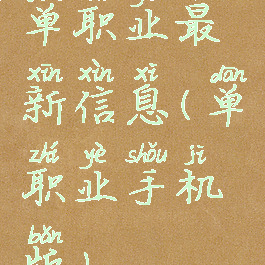 单职业最
xīn xìn xī dān
新信息(单
zhí yè shǒu jī
职业手机
bǎn
版)